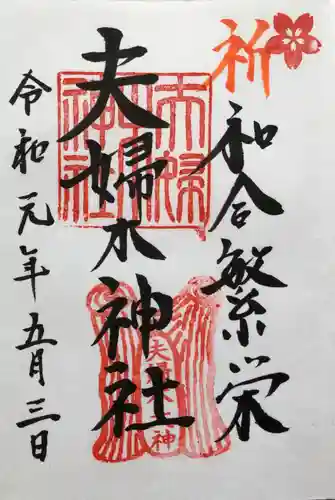 祈
和合繁栄
夫婦木神社
令和元年五月三日
夫婦木大神